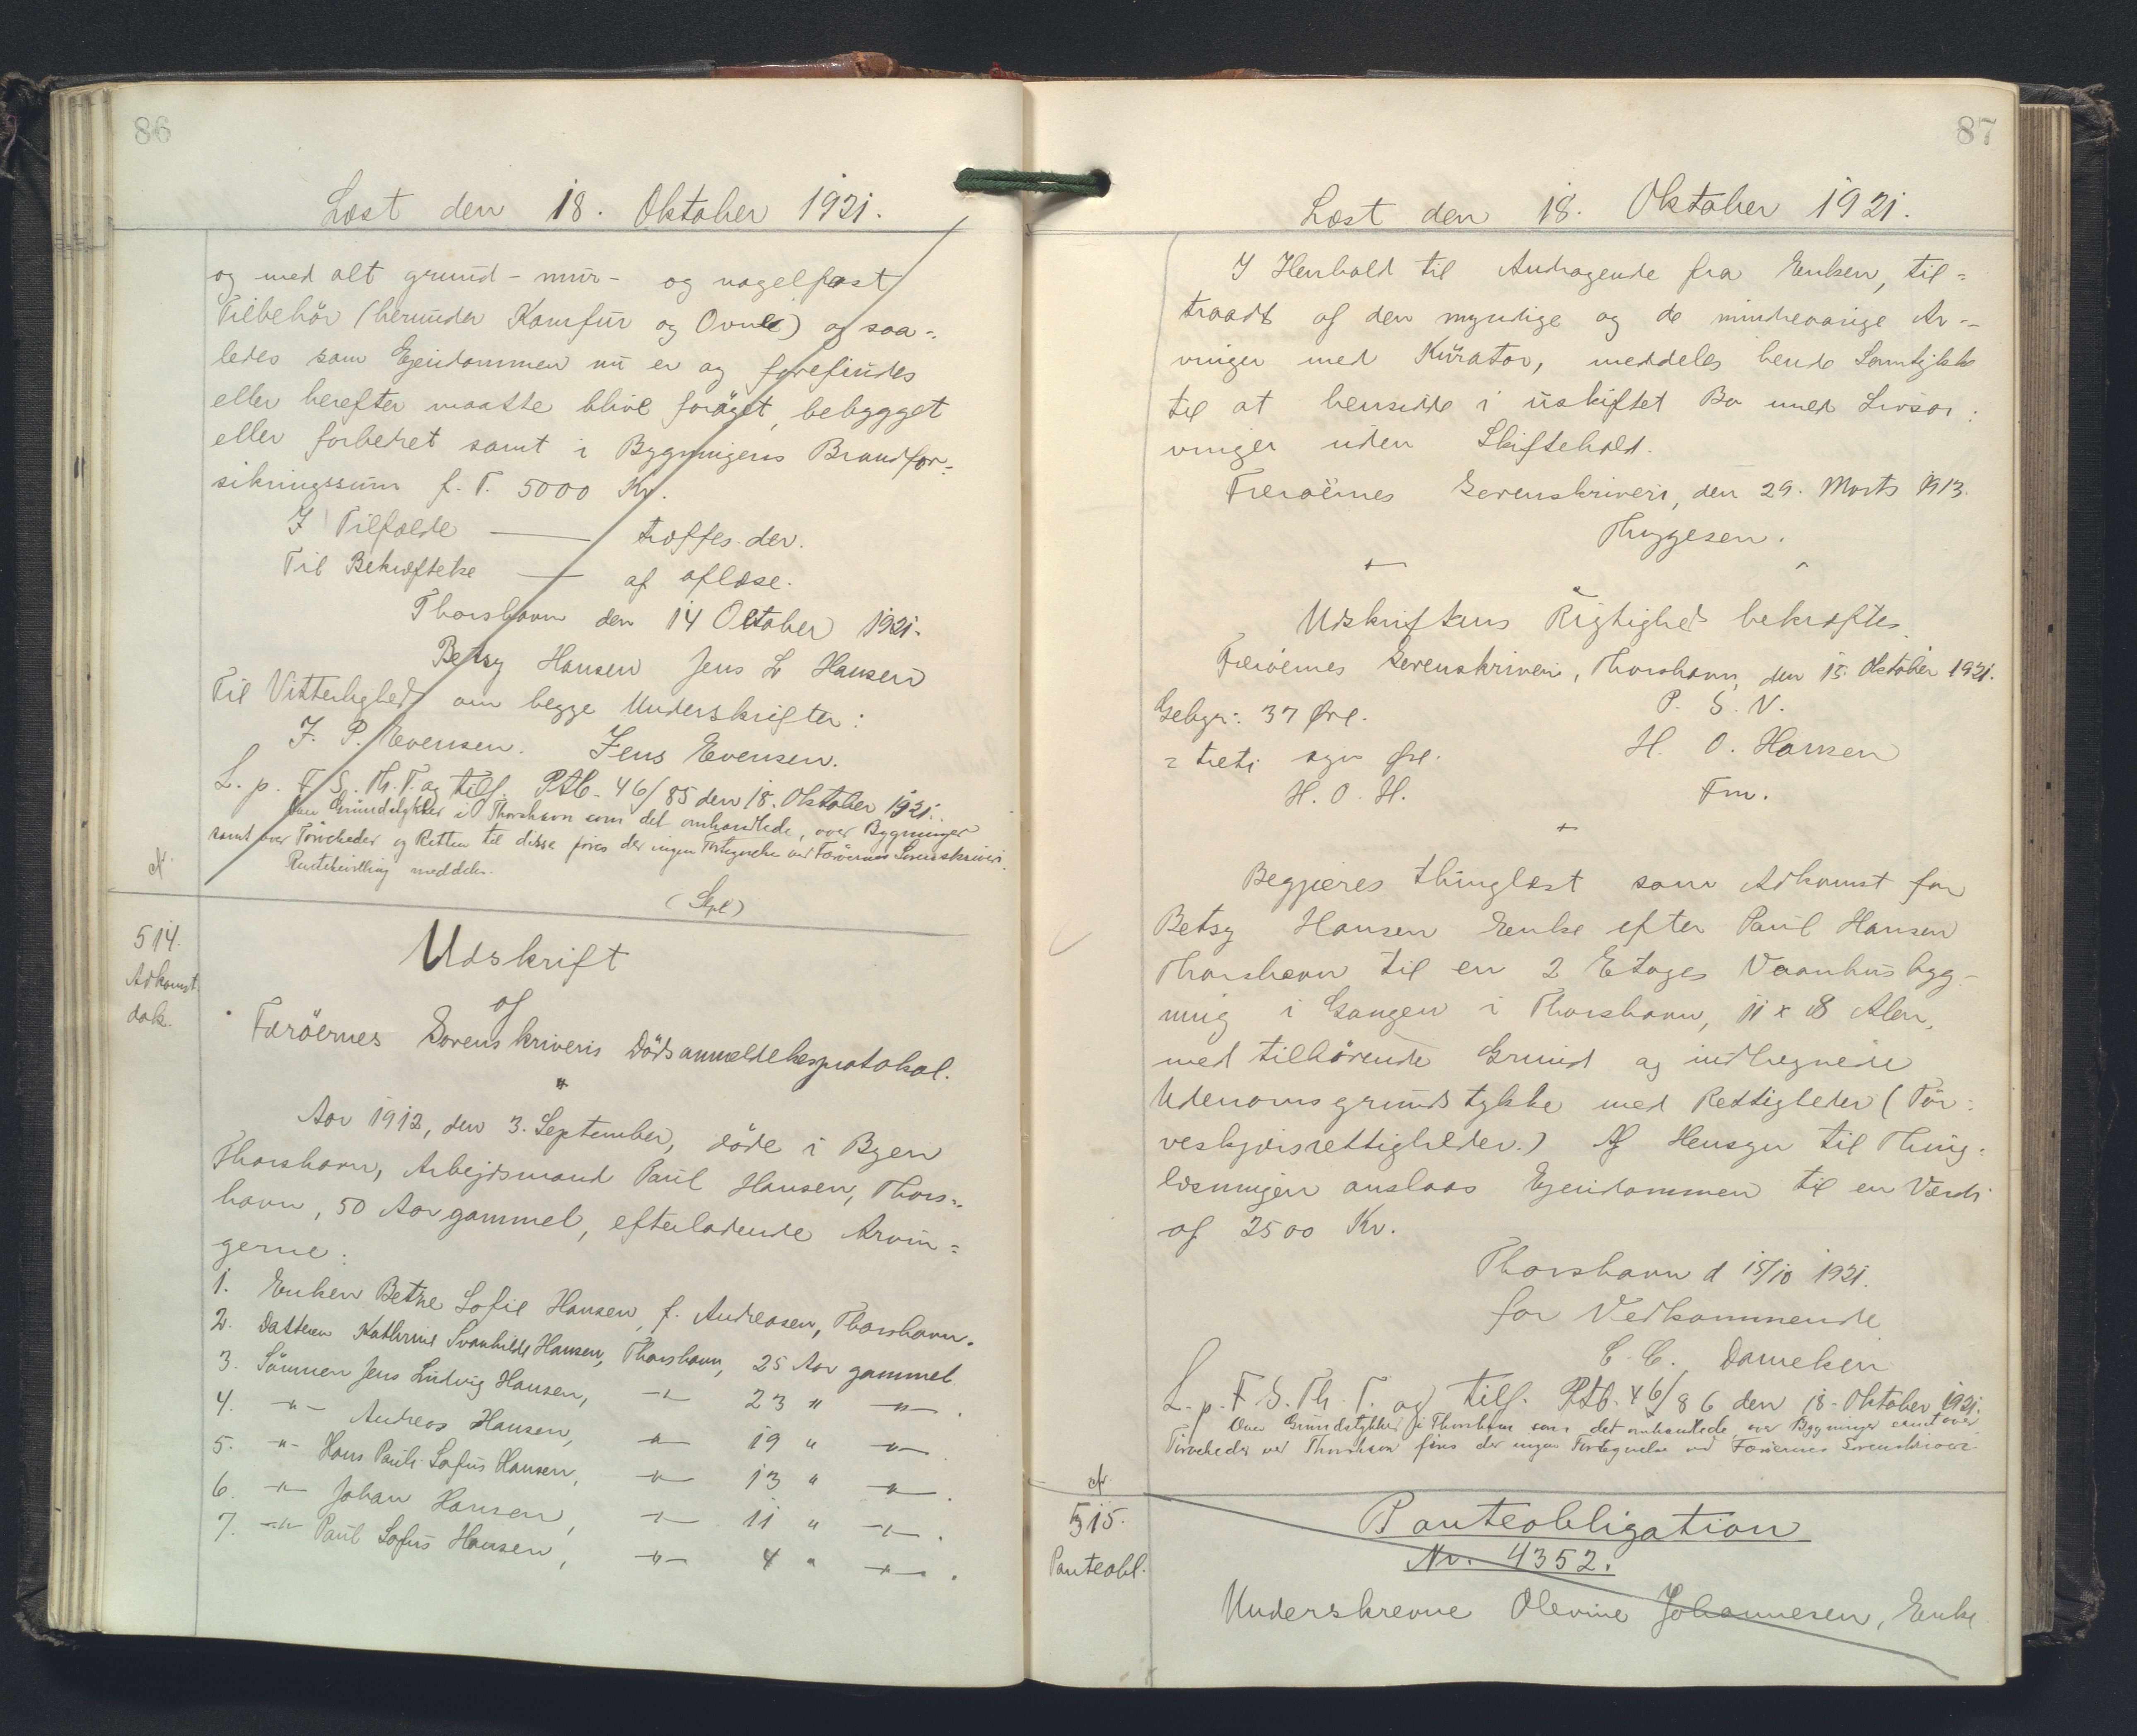 86
Læst den 18. Oktober 1921.
og med alt grund- mur- og nagelfast
Tilbehör (herunder Komfur og Ovne) og saa-
ledes som Ejendommen nu er og forefindes
eller herefter maatte blive forøget, bebygget
eller forbedret samt i Bygningens Brandfor-
sikringssum f. T. 5000 Kr.
I Tilfælde — træffes der.
Til Bekræftelse — af aflæse.
Thorshavn den 14 October 1921.
Betsy Hansen Jens L Hansen
Til Vitterlighed om begge Underskrifter:
J. P. Evensen. Jens Evensen.
L. p. F. S. Th. T. og tilf. Ptb. 46/85 den 18. Oktober 1921.
Over Grundstykker i Thorshavn som det omhandlede, over Bygninger
samt over Törveheder og Retten til disse föres der ingen Fortegnelse ved Færöernes Sorenskriveri.
Rentebevilling meddeles.
(Slut)
514.
Adkomst
dok.
Udskrift
af
Færöernes Sorenskriveris Dödsanmeldelsesprotokol.
Aar 1912, den 3. September, döde i Byen
Thorshavn, Arbejdsmand Paul Hansen, Thors-
havn, 50 Aar gammel, efterladende Arvin-
gerne:
1. Enken Betzie Sofie Hansen, f. Andreasen, Thorshavn.
2. Datteren Kathrine Svanhilde Hansen, Thorshavn, 25 Aar gammel
3. Sönnen Jens Ludvig Hansen, -"- 23 " -"-.
4. -"- Andreas Hansen, -"- 19 " -"-
5. -"- Hans Pauli Lofus Hansen, -"- 13 " -"-.
6. -"- Johan Hansen, -"- 11 " -"-.
7. -"- Paul Sofus Hansen, -"- 4 " -"-.
87
Læst den 18. Oktober 1921.
I Henhold til Andragende fra Enken, til-
traadt af den myndige og de mindreaarige Ar-
vinger med Kurator, meddeles hende Samtykke
til at hensidde i uskiftet Bo med Livsar-
vinger uden Skiftehold.
Færöernes Sorenskriveri, den 29. Marts 1913.
Thygesen.
Udskriftens Rigtighed bekræftes.
Færöernes Sorenskriveri, Thorshavn, den 15. Oktober 1921.
Gebyr: 37 Øre.
P. S. V.
= treti syv Øre.
H. O. Hansen
H. O. H.
Fm.
Begjæres thinglæst som Adkomst for
Betsy Hansen Enke efter Paul Hansen
Thorshavn til en 2 Etages Vaanhusbyg-
ning i Gangen i Thorshavn, 11 x 8 Alen,
med tilhörende Grund og indhegnede
Udenomsgrundstykke med Rettigheder (Tör-
veskjærsrettigheder.) Af Hensyn til Thing-
læsningen anslaas Ejendommen til en Værdi
af 2500 Kr.
Thorshavn d 15/10 1921.
for Vedkommende
C. C. Danielsen
L. p. F. S. Th. T. og tilf. Ptb. 46/86 den 18. Oktober 1921.
Over Grundstykker i Thorshavn som det omhandlede over Bygninger samt over
Törveheder ved Thorshavn föres der ingen Fortegnelse ved Færöernes Sorenskriveri
515.
Panteobl.
Panteobligation
Nr. 4352.
Underskrevne Olevine Johannesen, Enke